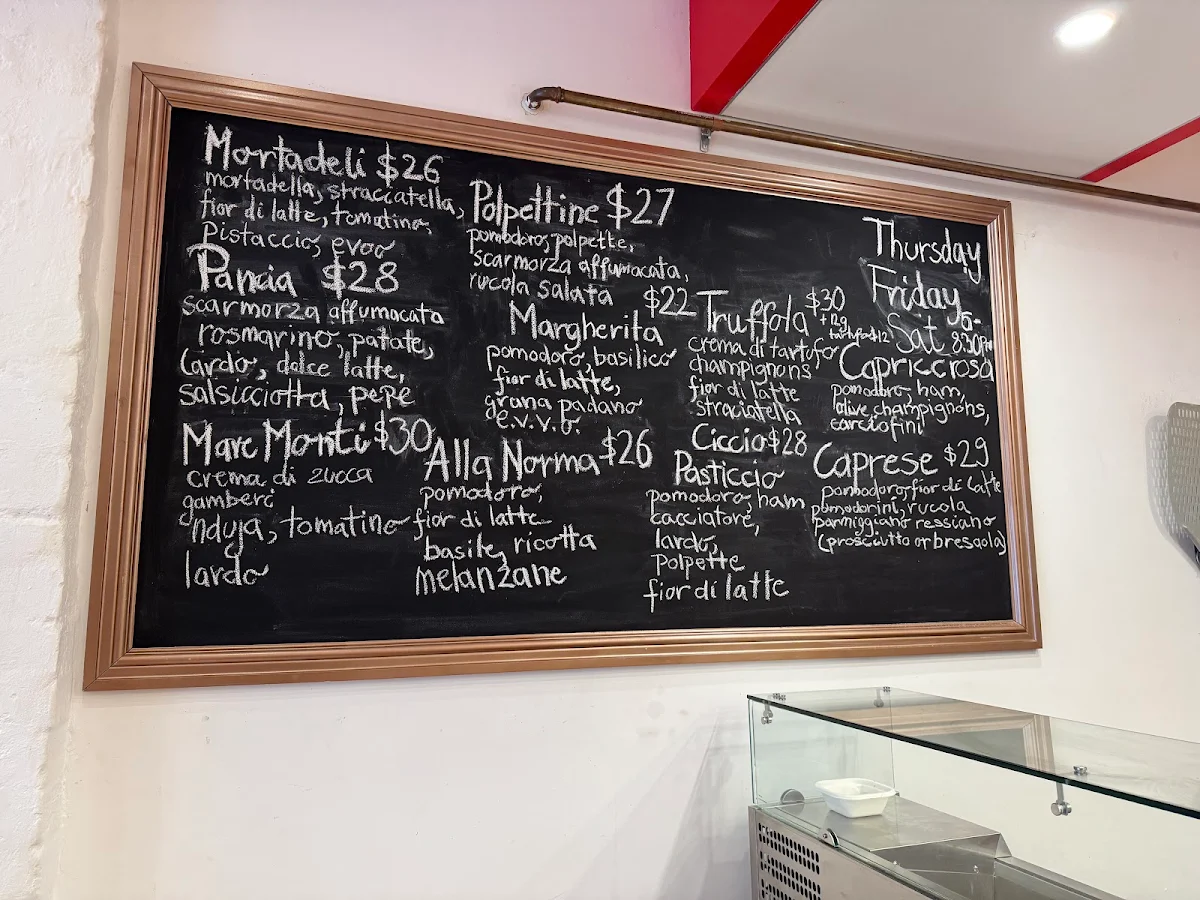 Mortadeli $26
mortadella, stracciatella,
fior di latte, tomatino,
Pistaccio, evoo
Pancia $28
scarmorza affumacata
rosmarino, patate,
lardo, dolce latte,
salsicciotta, pepe
Mare Monti $30
crema di zucca
gamberi
nduja, tomatino
lardo
Polpettine $27
pomodoro, polpette,
scarmorza affumacata,
rucola salata
$22
Margherita
pomodoro, basilico
fior di latte,
grana padano
e.v.v.o.
Alla Norma $26
pomodoro,
fior di latte
basile, ricotta
melanzane
Truffola $30
+12g
tartufo $12
crema di tartufo
champignons
fior di latte
straciatella
Ciccio $28
Pasticcio
pomodoro, ham
cacciatore,
lardo,
polpette
fior di latte
Thursday
Friday
Sat 8:30Pm
Capriccrosa
pomodoro, ham,
olive, champignons,
carciofini
Caprese $29
pomodoro, fior di latte
pomodorini, rucola
parmiggiano ressiano
(prosciutto or bresaola)